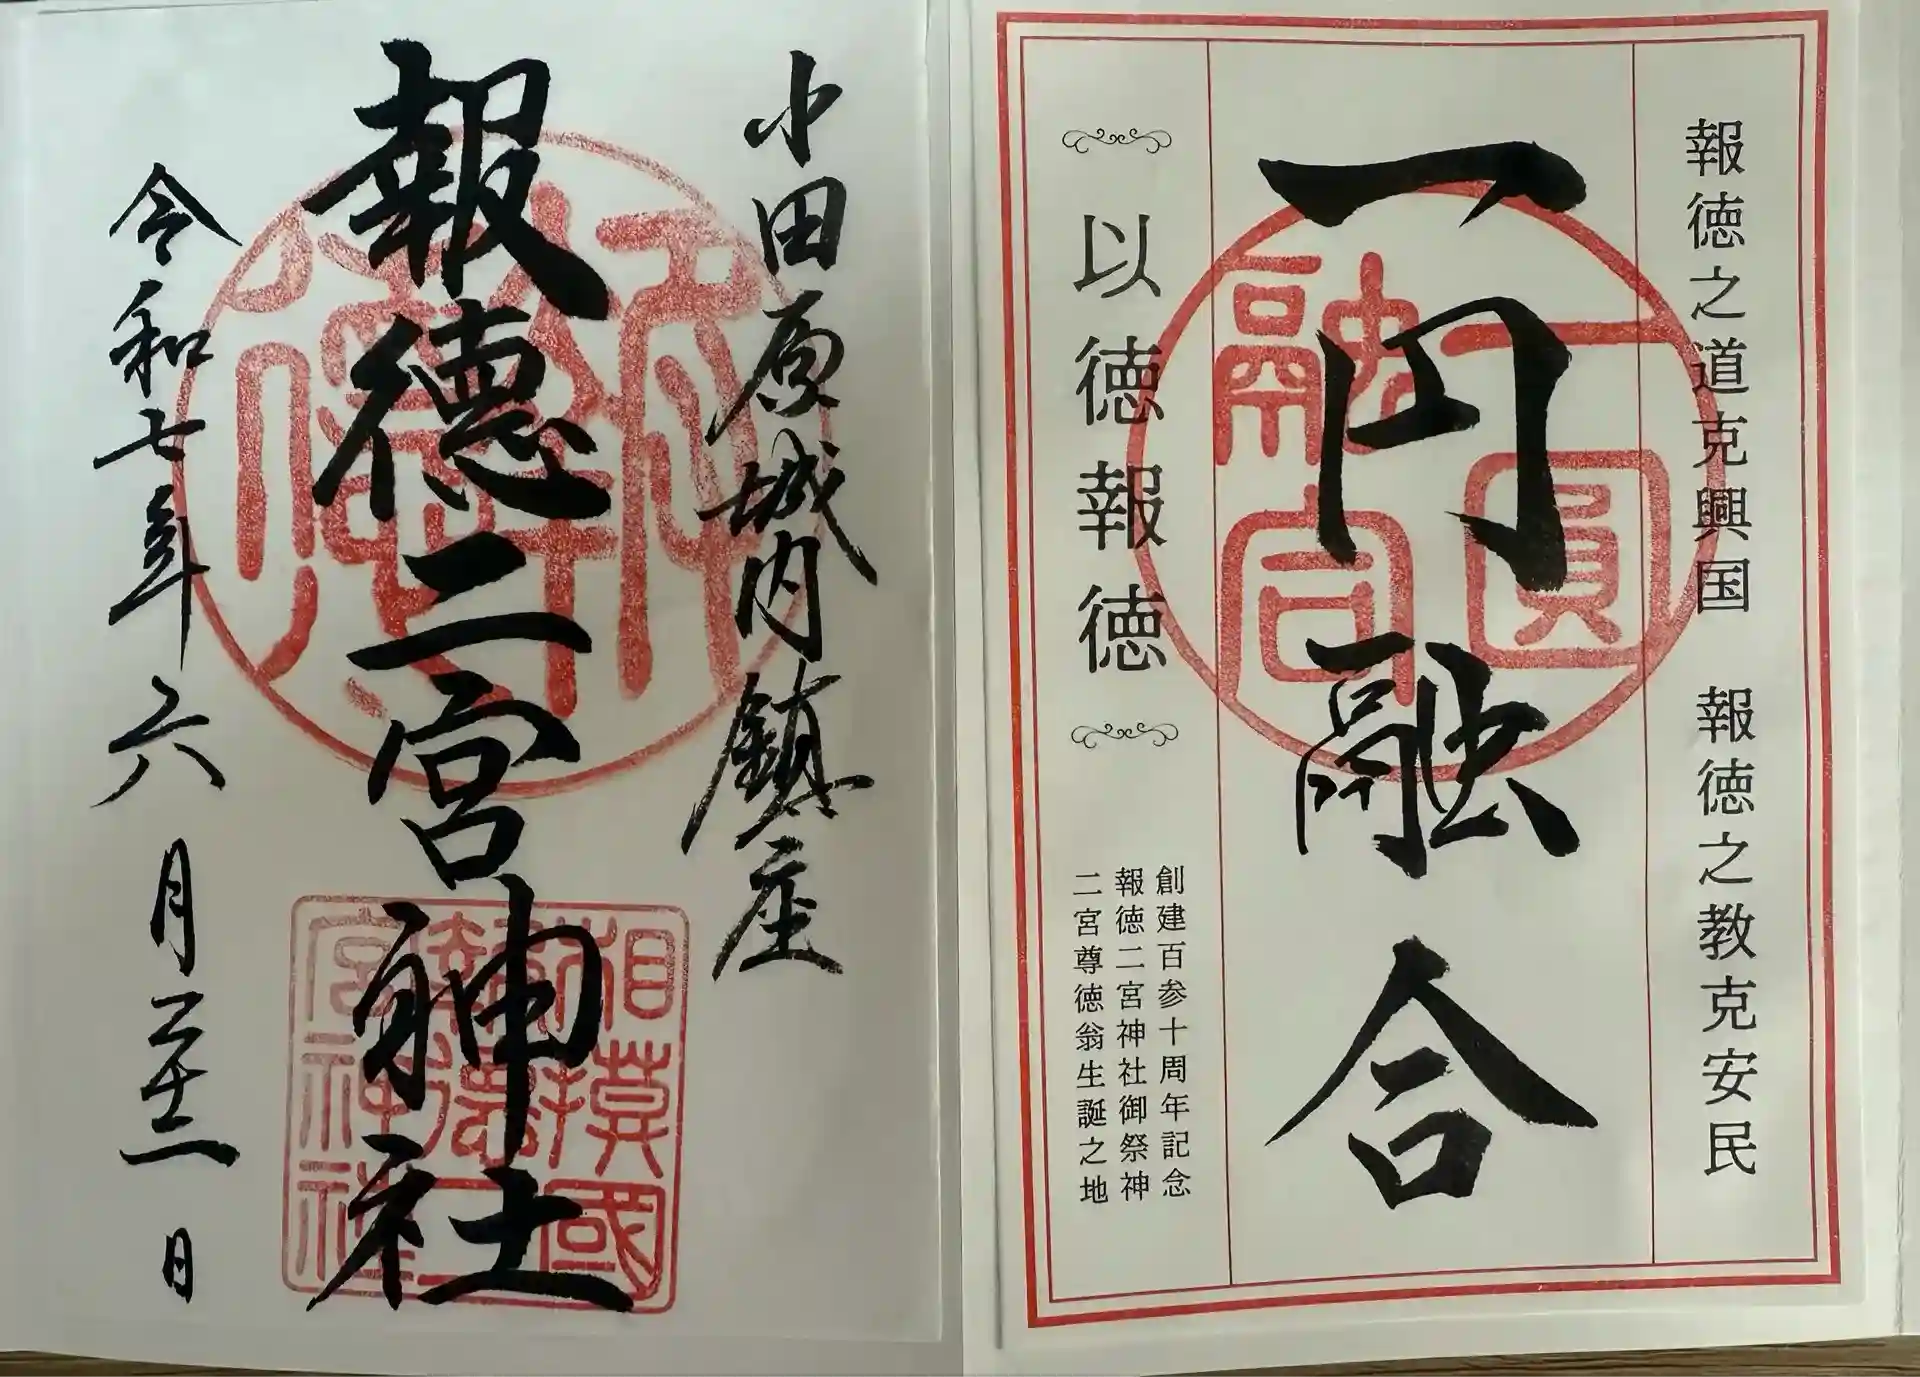 報徳之道克興国　報徳之教克安民
一円融合
一圓
融合
以徳報徳
創建百参十周年記念
報徳二宮神社御祭神
二宮尊徳翁生誕之地
小田原城内鎮座
報徳二宮神社
相模國
報徳二
宮神社
令和七年六月二十二日